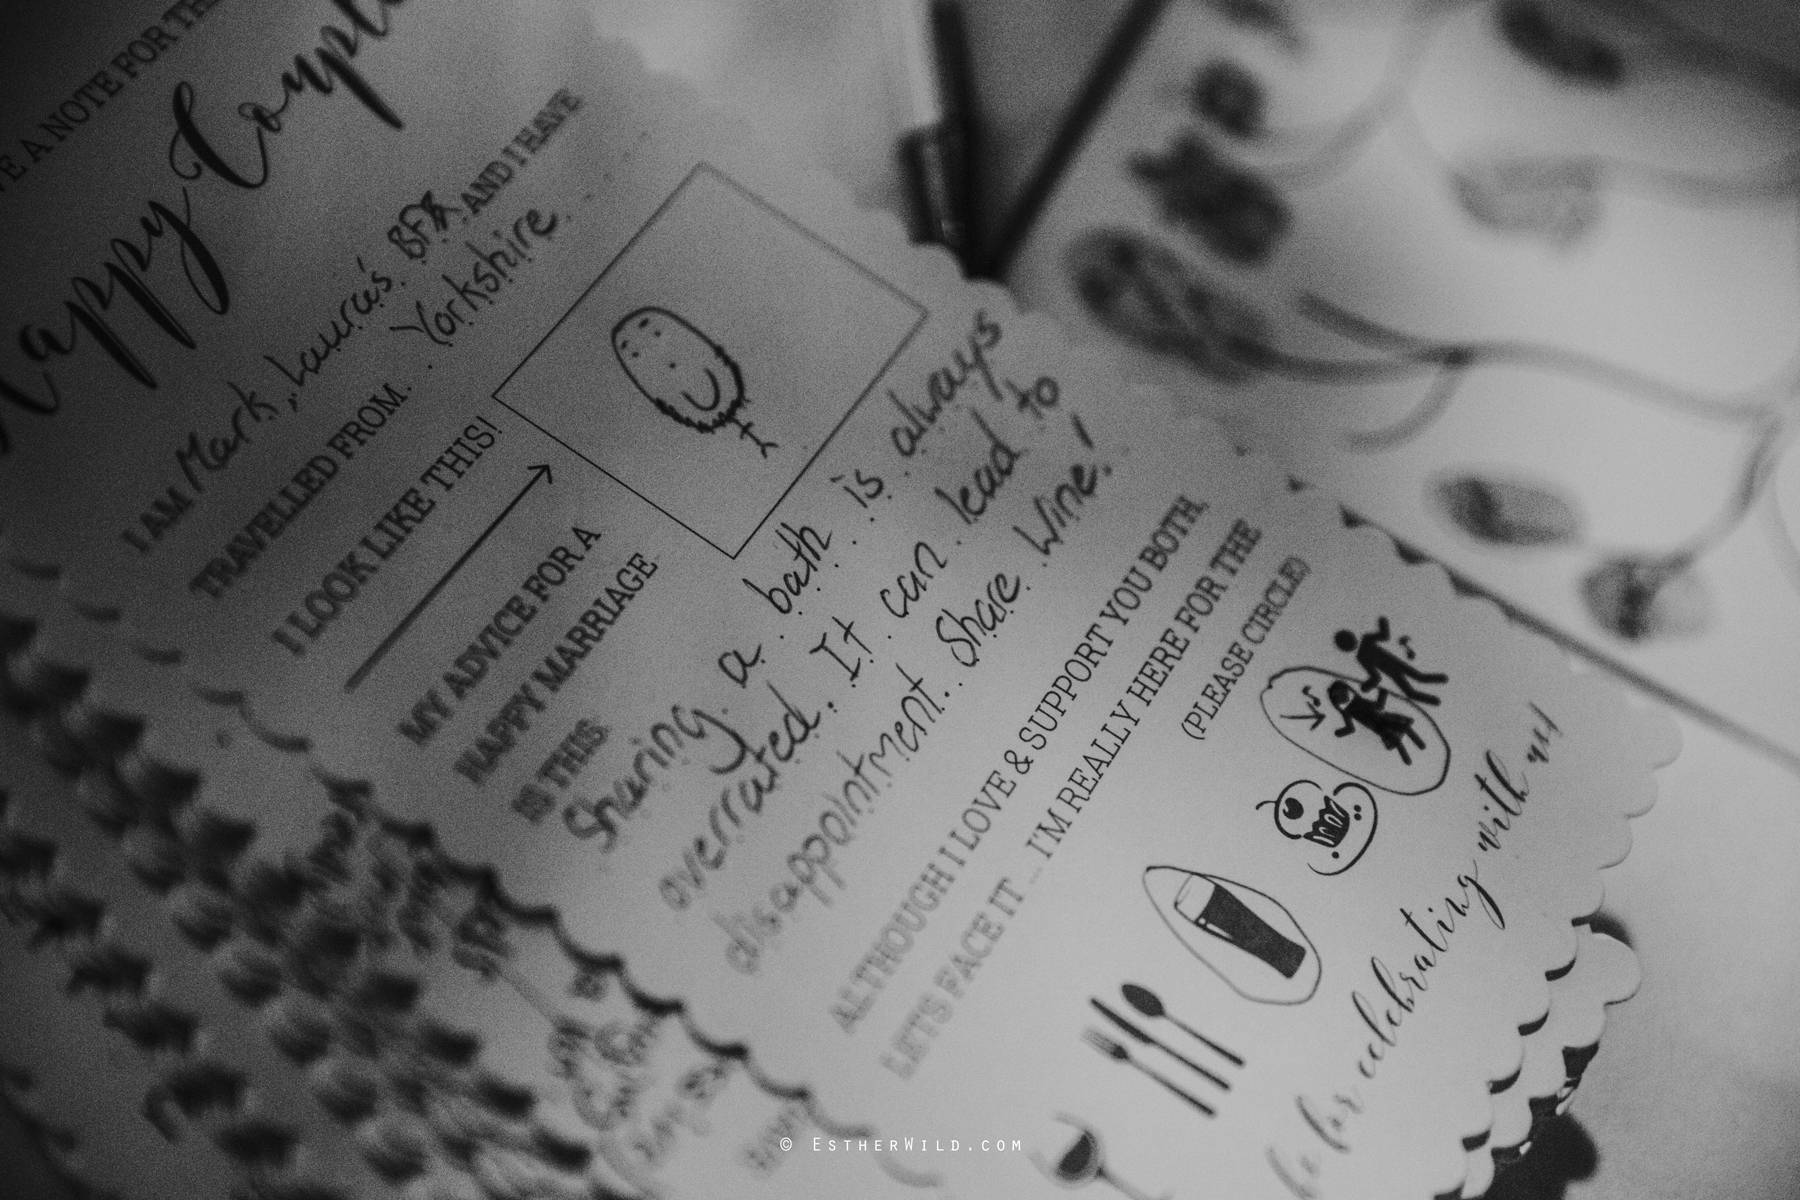 A NOTE FOR
Happy Couple
I AM Mark, Laura's BFF AND I HAVE
TRAVELLED FROM. . Yorkshire. . .
I LOOK LIKE THIS!
MY ADVICE FOR A
HAPPY MARRIAGE
IS THIS:
Sharing a bath is always
overrated. It can lead to
disappointment. Share Wine!
ALTHOUGH I LOVE & SUPPORT YOU BOTH,
LETS FACE IT ... I'M REALLY HERE FOR THE
(PLEASE CIRCLE)
for celebrating with us!
© ESTHERWILD.COM